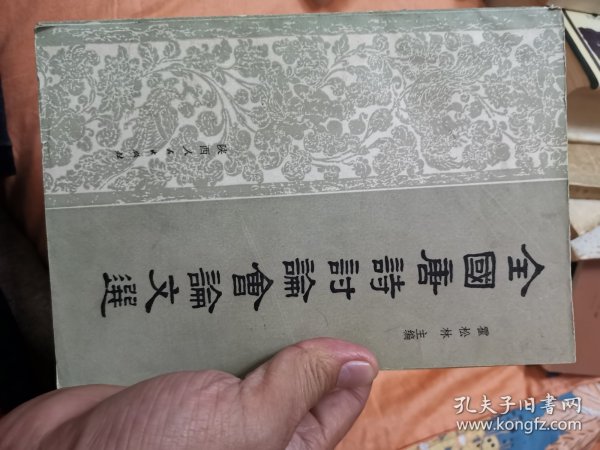 全國唐詩討論會論文選
霍松林 主编
陕西人民出版社
孔夫子旧书网
www.kongfz.com